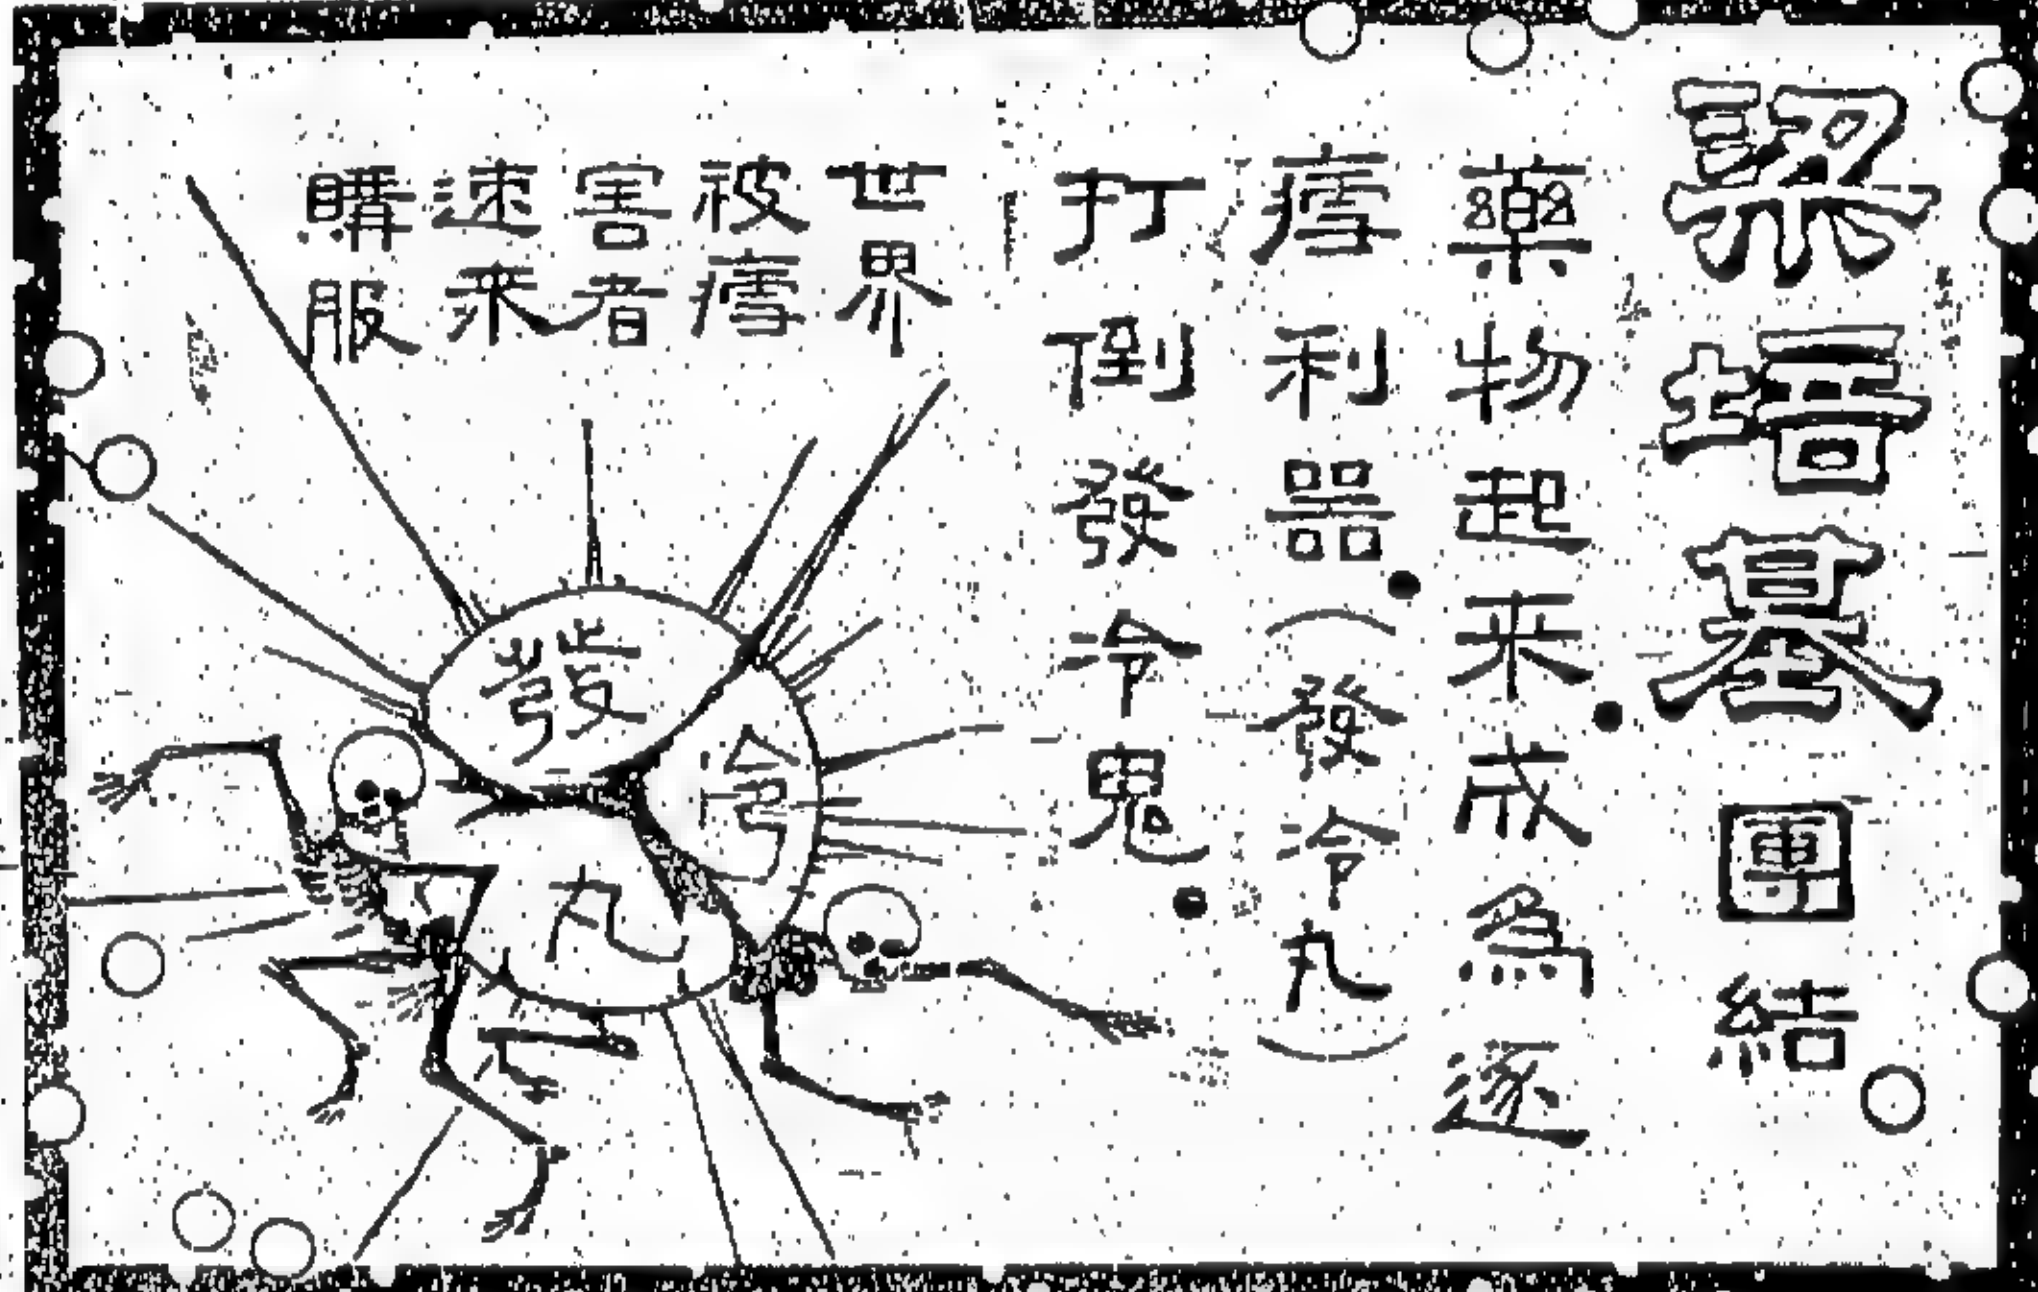 梁培基團結
藥物起来成為逐
瘧利器（發冷丸）
打倒發冷鬼
世界
被瘧
害者
速来
購服
發
冷
丸